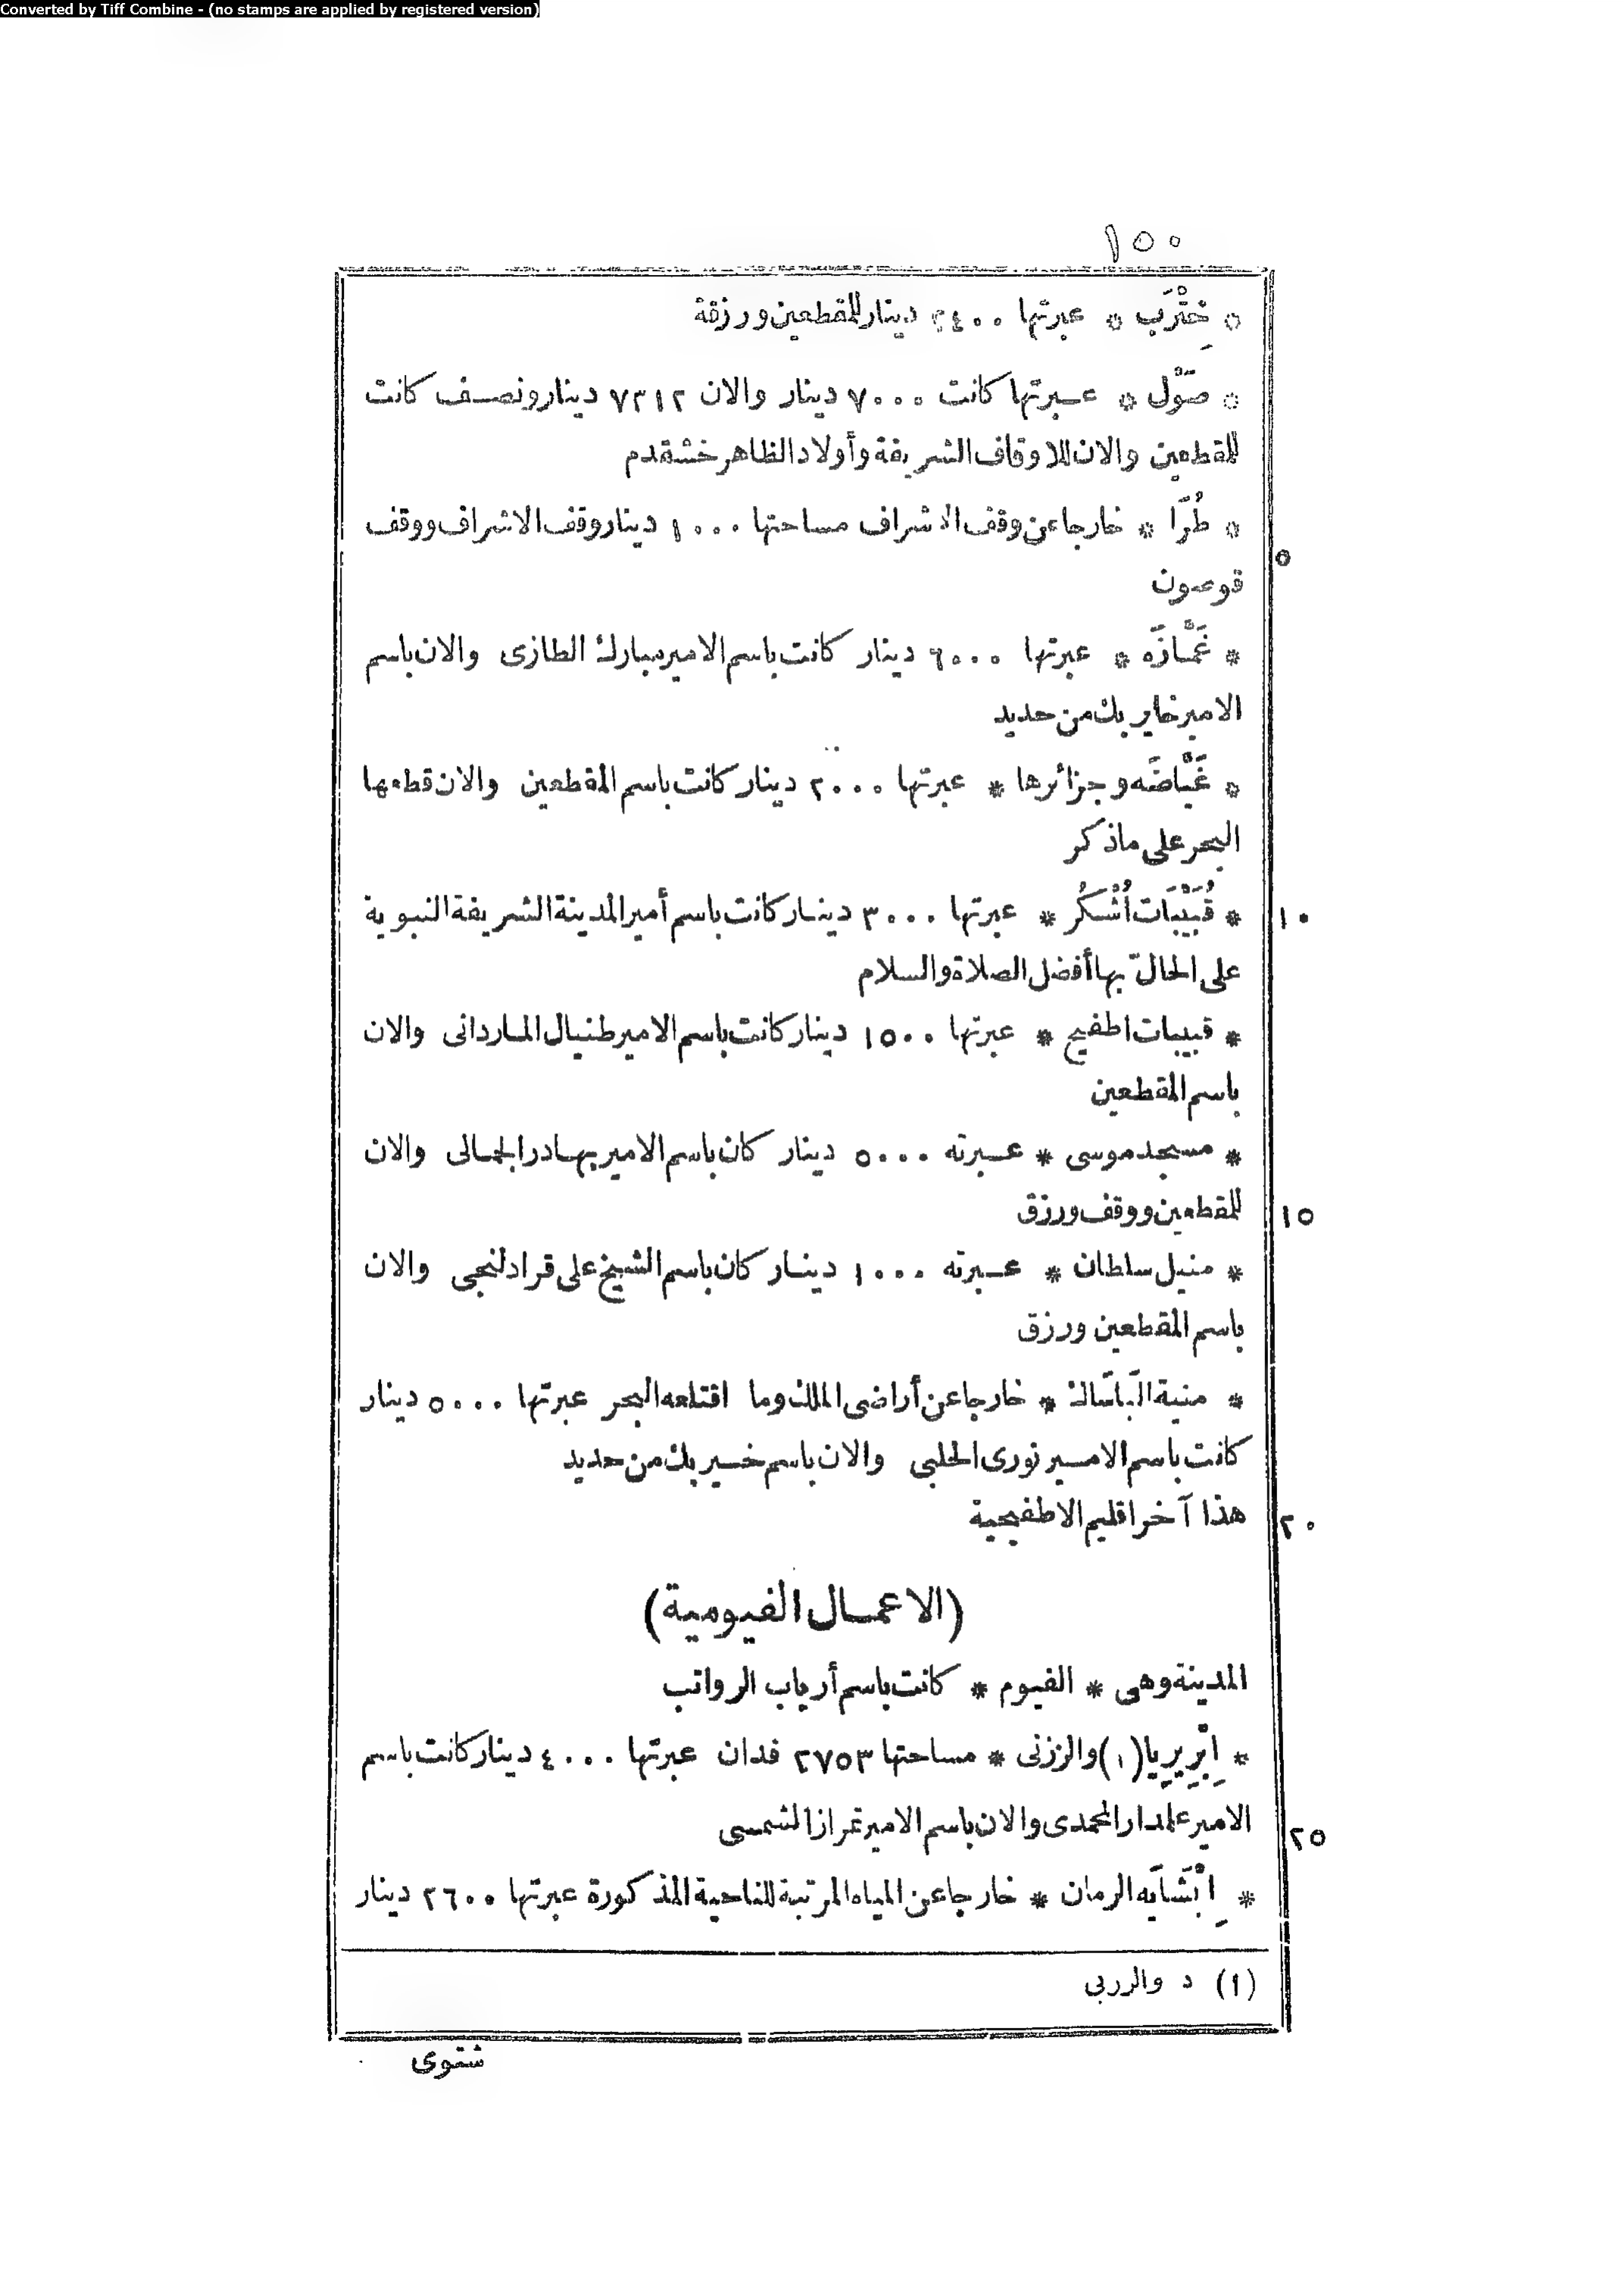 Converted by Tiff Combine - (no stamps are applied by registered version)
١٥٠
* خِتْرَب * عبرتها ٢٤٠٠ دينار للمقطعين ورزقة
* صَوْل * عبرتها كانت ٧٠٠٠ دينار والان ٧٣١٢ دينار ونصف كانت
للمقطعين والان للاوقاف الشريفة وأولاد الظاهر خشقدم
* طُرّا * خارجا عن وقف الاشراف مساحتها ١٠٠٠ دينار وقف الاشراف ووقف
٥
قوصون
* غَمَّازَه * عبرتها ٦٠٠٠ دينار كانت باسم الامير مبارك الطازى والان باسم
الامير خاير بك من حديد
* غَيَّاضَه وجزائرها * عبرتها ٢٠٠٠ دينار كانت باسم المقطعين والان قطعها
البحر على ماذكر
* قُبَيْبَات أُشْكُر * عبرتها ٣٠٠٠ دينار كانت باسم أمير المدينة الشريفة النبوية
١٠
على الحالّ بها أفضل الصلاة والسلام
* قبيبات اطفيح * عبرتها ١٥٠٠ دينار كانت باسم الامير طنيال الماردانى والان
باسم المقطعين
* مسجد موسى * عبرته ٥٠٠٠ دينار كان باسم الامير بهادر الجمالى والان
للمقطعين ووقف ورزق
١٥
* منيل سلطان * عبرته ١٠٠٠ دينار كان باسم الشيخ على والان
باسم المقطعين ورزق
* منية الباسَاك * خارجا عن أراضى الملك وما اقتلعه البحر عبرتها ٥٠٠٠ دينار
كانت باسم الامير نورى الحلبى والان باسم خير بك من حديد
هذا آخر اقليم الاطفيحية
٢٠
(الاعمال الفيومية)
المدينة وهى * الفيوم * كانت باسم أرباب الرواتب
* اِبْرِيرِيا (١) والرزنى * مساحتها ٢٧٥٣ فدان عبرتها ٤٠٠٠ دينار كانت باسم
الامير علمدار المحمدى والان باسم الامير تمراز الشمسى
٢٥
* اِبْشَايَه الرمان * خارجا عن المياه المرتبة للناحية المذكورة عبرتها ٢٦٠٠ دينار
(١) د والرربى
شتوى